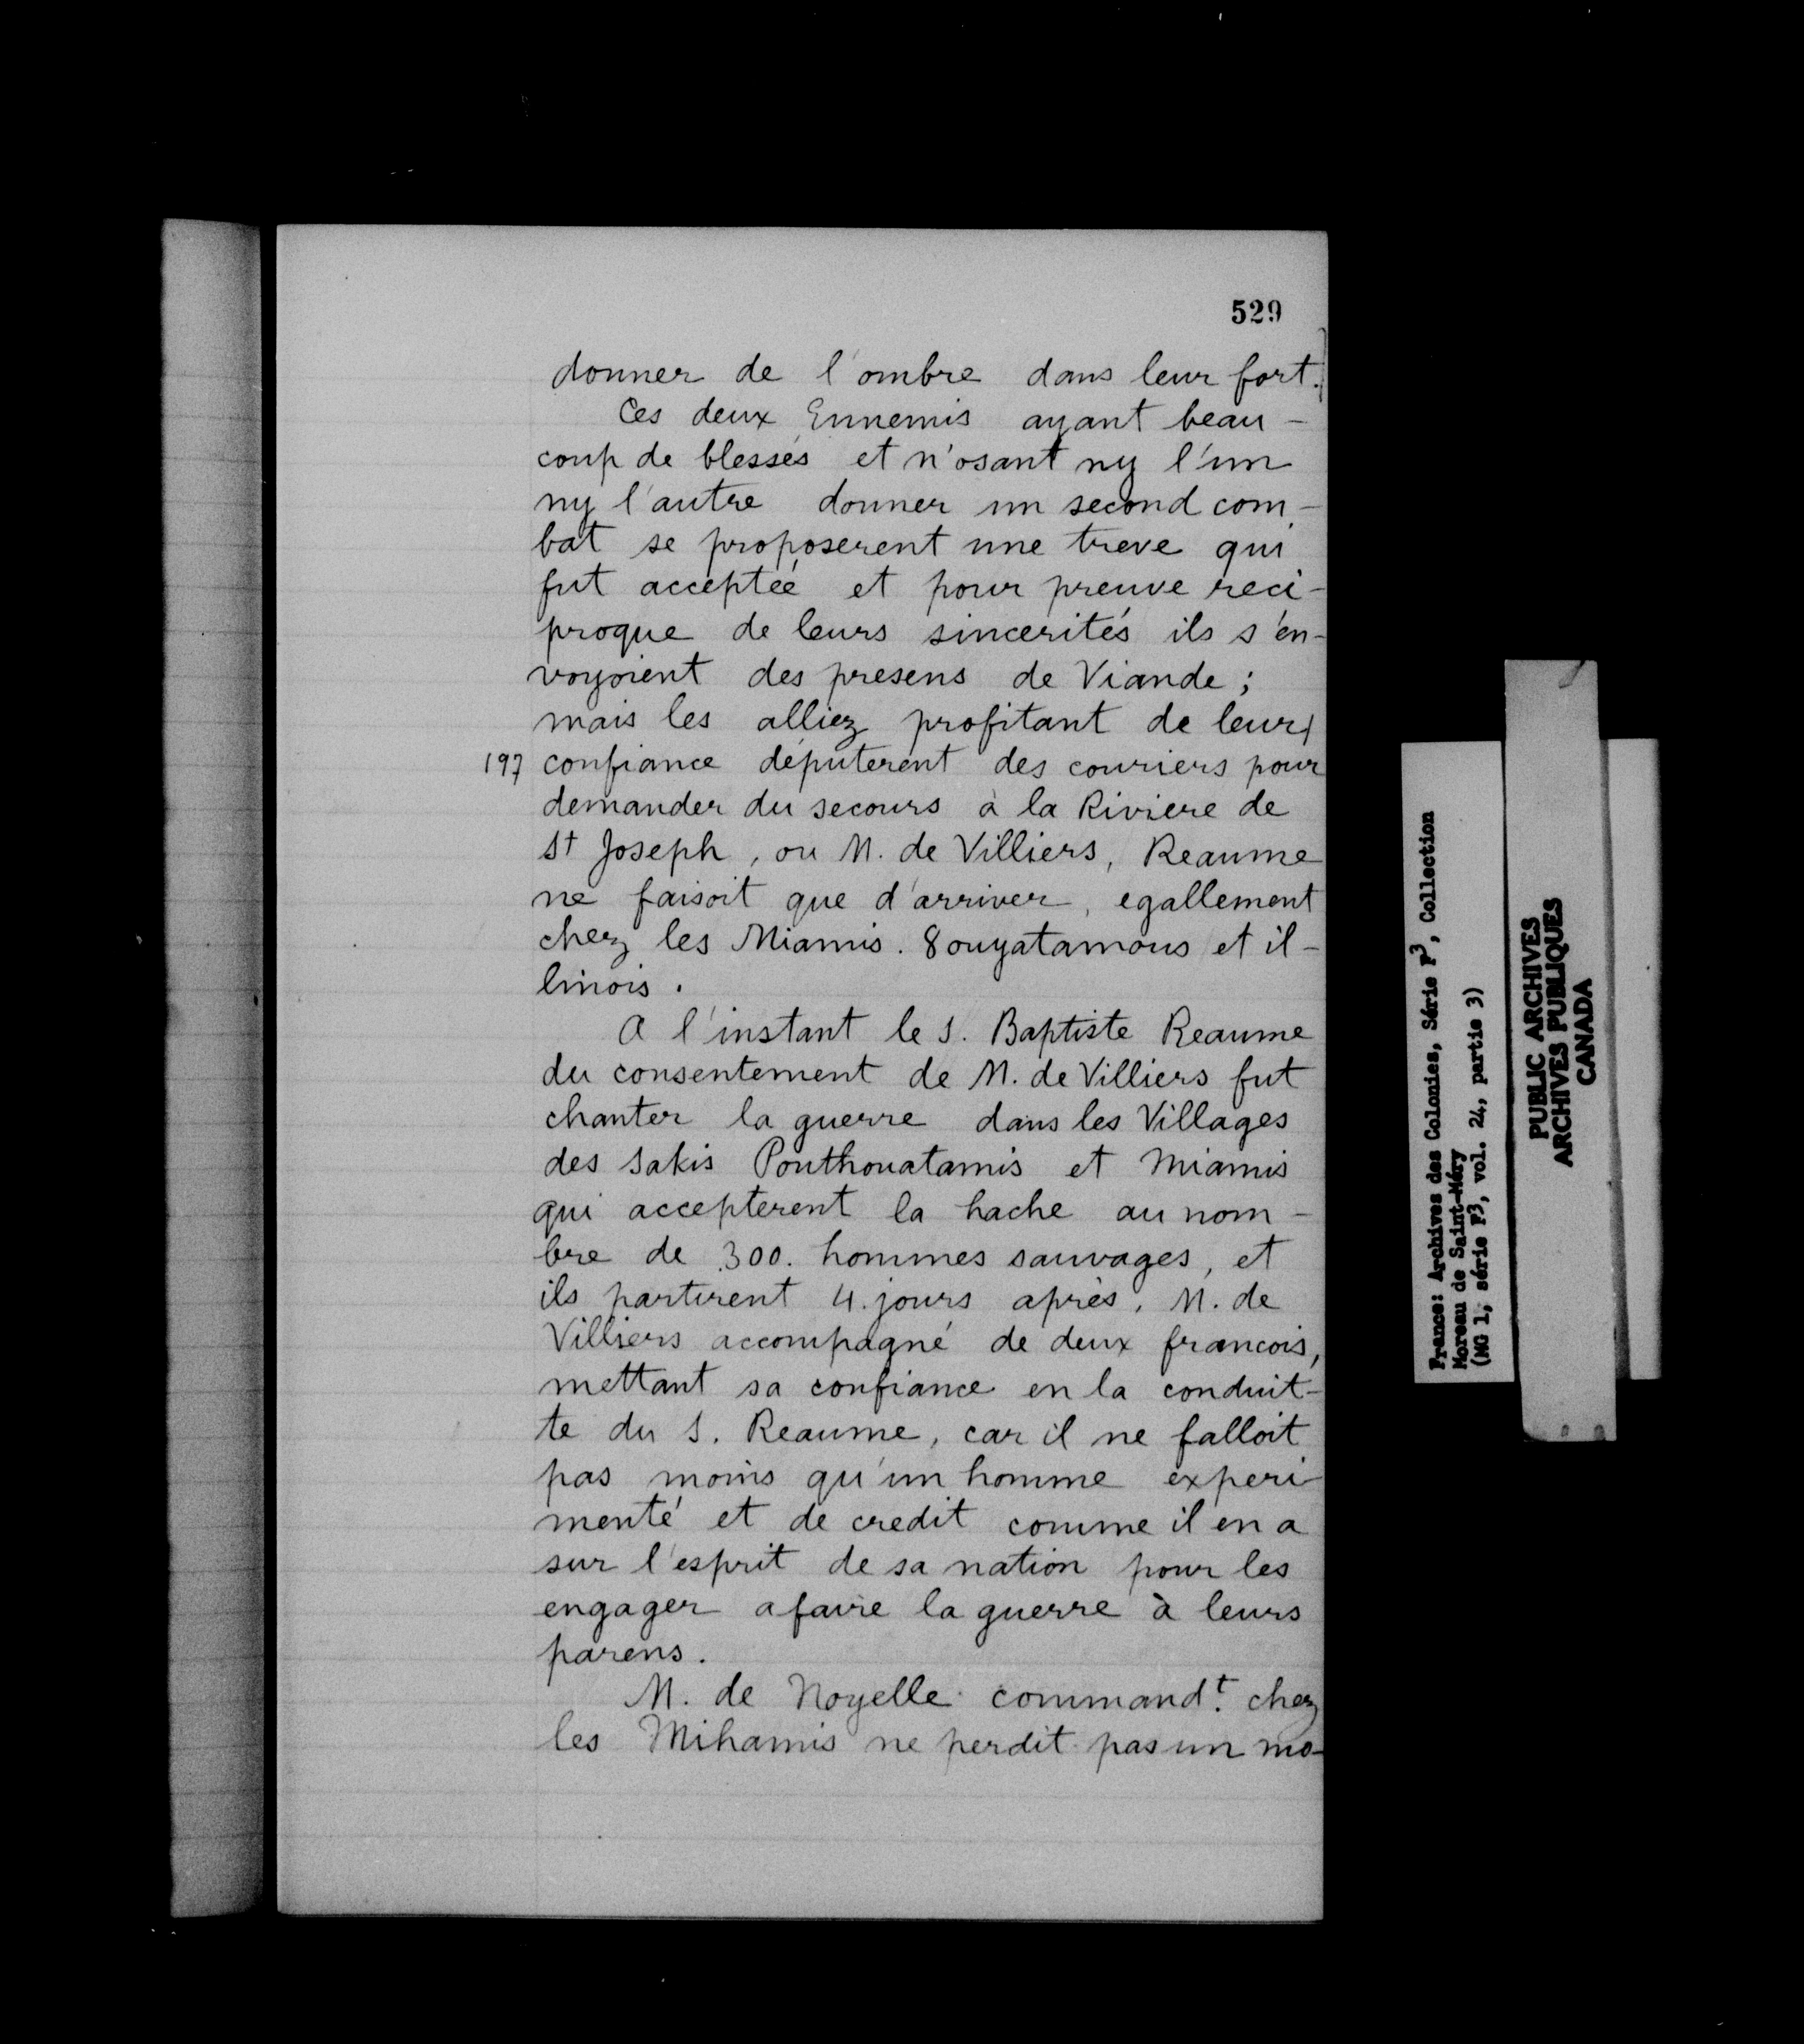 529
donner de l'ombre dans leur fort.
Ces deux Ennemis ayant beau-
coup de blessés et n'osant ny l'un
ny l'autre donner un second com-
bat se proposerent une treve qui
fut acceptée et pour preuve reci-
proque de leurs sincerités ils s'en-
voyoient des presens de Viande ;
mais les alliez profitant de leur
197 confiance députerent des couriers pour
demander du secours à la Riviere de
St Joseph, ou M. de Villiers, Reaume
ne faisoit que d'arriver, egallement
chez les Miamis. 8ouyatamous et il-
linois.
A l'instant le S. Baptiste Reaume
du consentement de M. de Villiers fut
chanter la guerre dans les Villages
des Sakis Pouthouatamis et Miamis
qui accepterent la hache au nom-
bre de 300. hommes sauvages, et
ils partirent 4. jours après. M. de
Villiers accompagné de deux francois,
mettant sa confiance en la conduit-
te du S. Reaume, car il ne falloit
pas moins qu'un homme experi-
menté et de credit comme il en a
sur l'esprit de sa nation pour les
engager a faire la guerre à leurs
parens.
M. de Noyelle commandt. chez
les Mihamis ne perdit pas un mo-
France: Archives des Colonies, Série F3, Collection
Moreau de Saint-Méry
(MG 1, série F3, vol. 24, partie 3)
PUBLIC ARCHIVES
ARCHIVES PUBLIQUES
CANADA